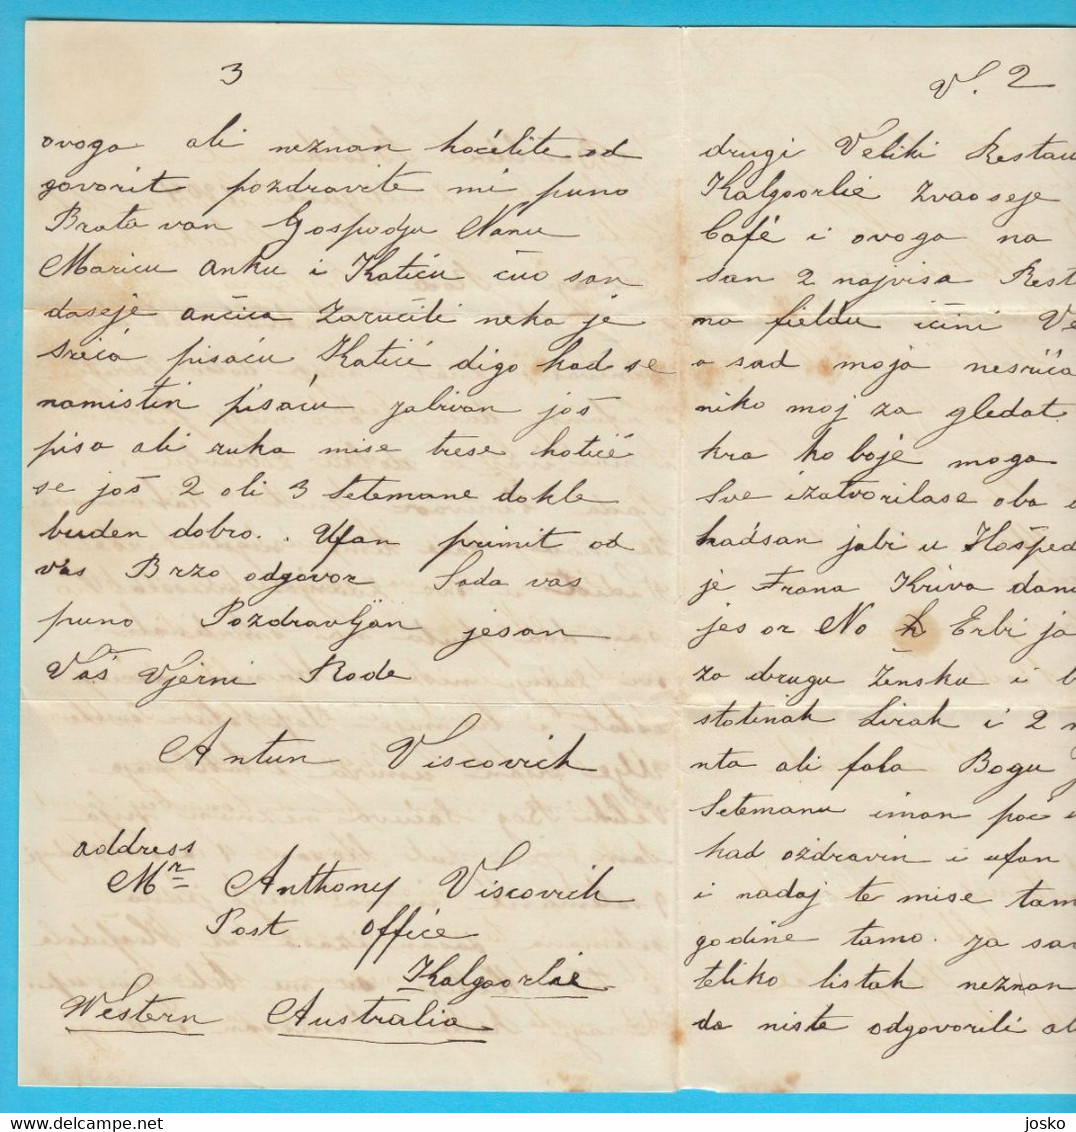 3
ovoga ali neznan hoćelite od
govorit pozdravite mi puno
Brata van Gospodju Nanu
Maricu Anku i Katicu čuo san
daseje ančica Zaručili neka je
srića pisaću Katić digo kad se
namistin pisaću zabivan još
pisa ali ruka mise trese hotić
se još 2 oli 3 Setemane dokle
buden dobro.. Ufan primit od
vas Brzo odgovor Sada vas
puno Pozdravljan jesan
Vaš Vjerni Rode
Antun Viscovich
address
Mr Anthony Viscovich
Post Office
Kalgoorlie
Western Australia
V. 2
drugi Veliki Restau
Kalgoorlie Zvaoseje
Café i ovoga na
san 2 najvisa Rest
na fieldu ičini Ve
a sad moja nesrića
niko moj za gledat
kra ko boje moga
Sve izatvorilase oba
kadsan jabi u Hošped
je Frana Kriva dan
jes or No Erbi ja
za drugu žensku i b
stotinak Lirak i 2
nta ali fala Bogu
Setemanu iman poć
kad ozdravin i ufan
i nadaj te mise tam
godine tamo. ja sa
teliko listak neznan
da niste odgovorili al
delcampe.net
josko